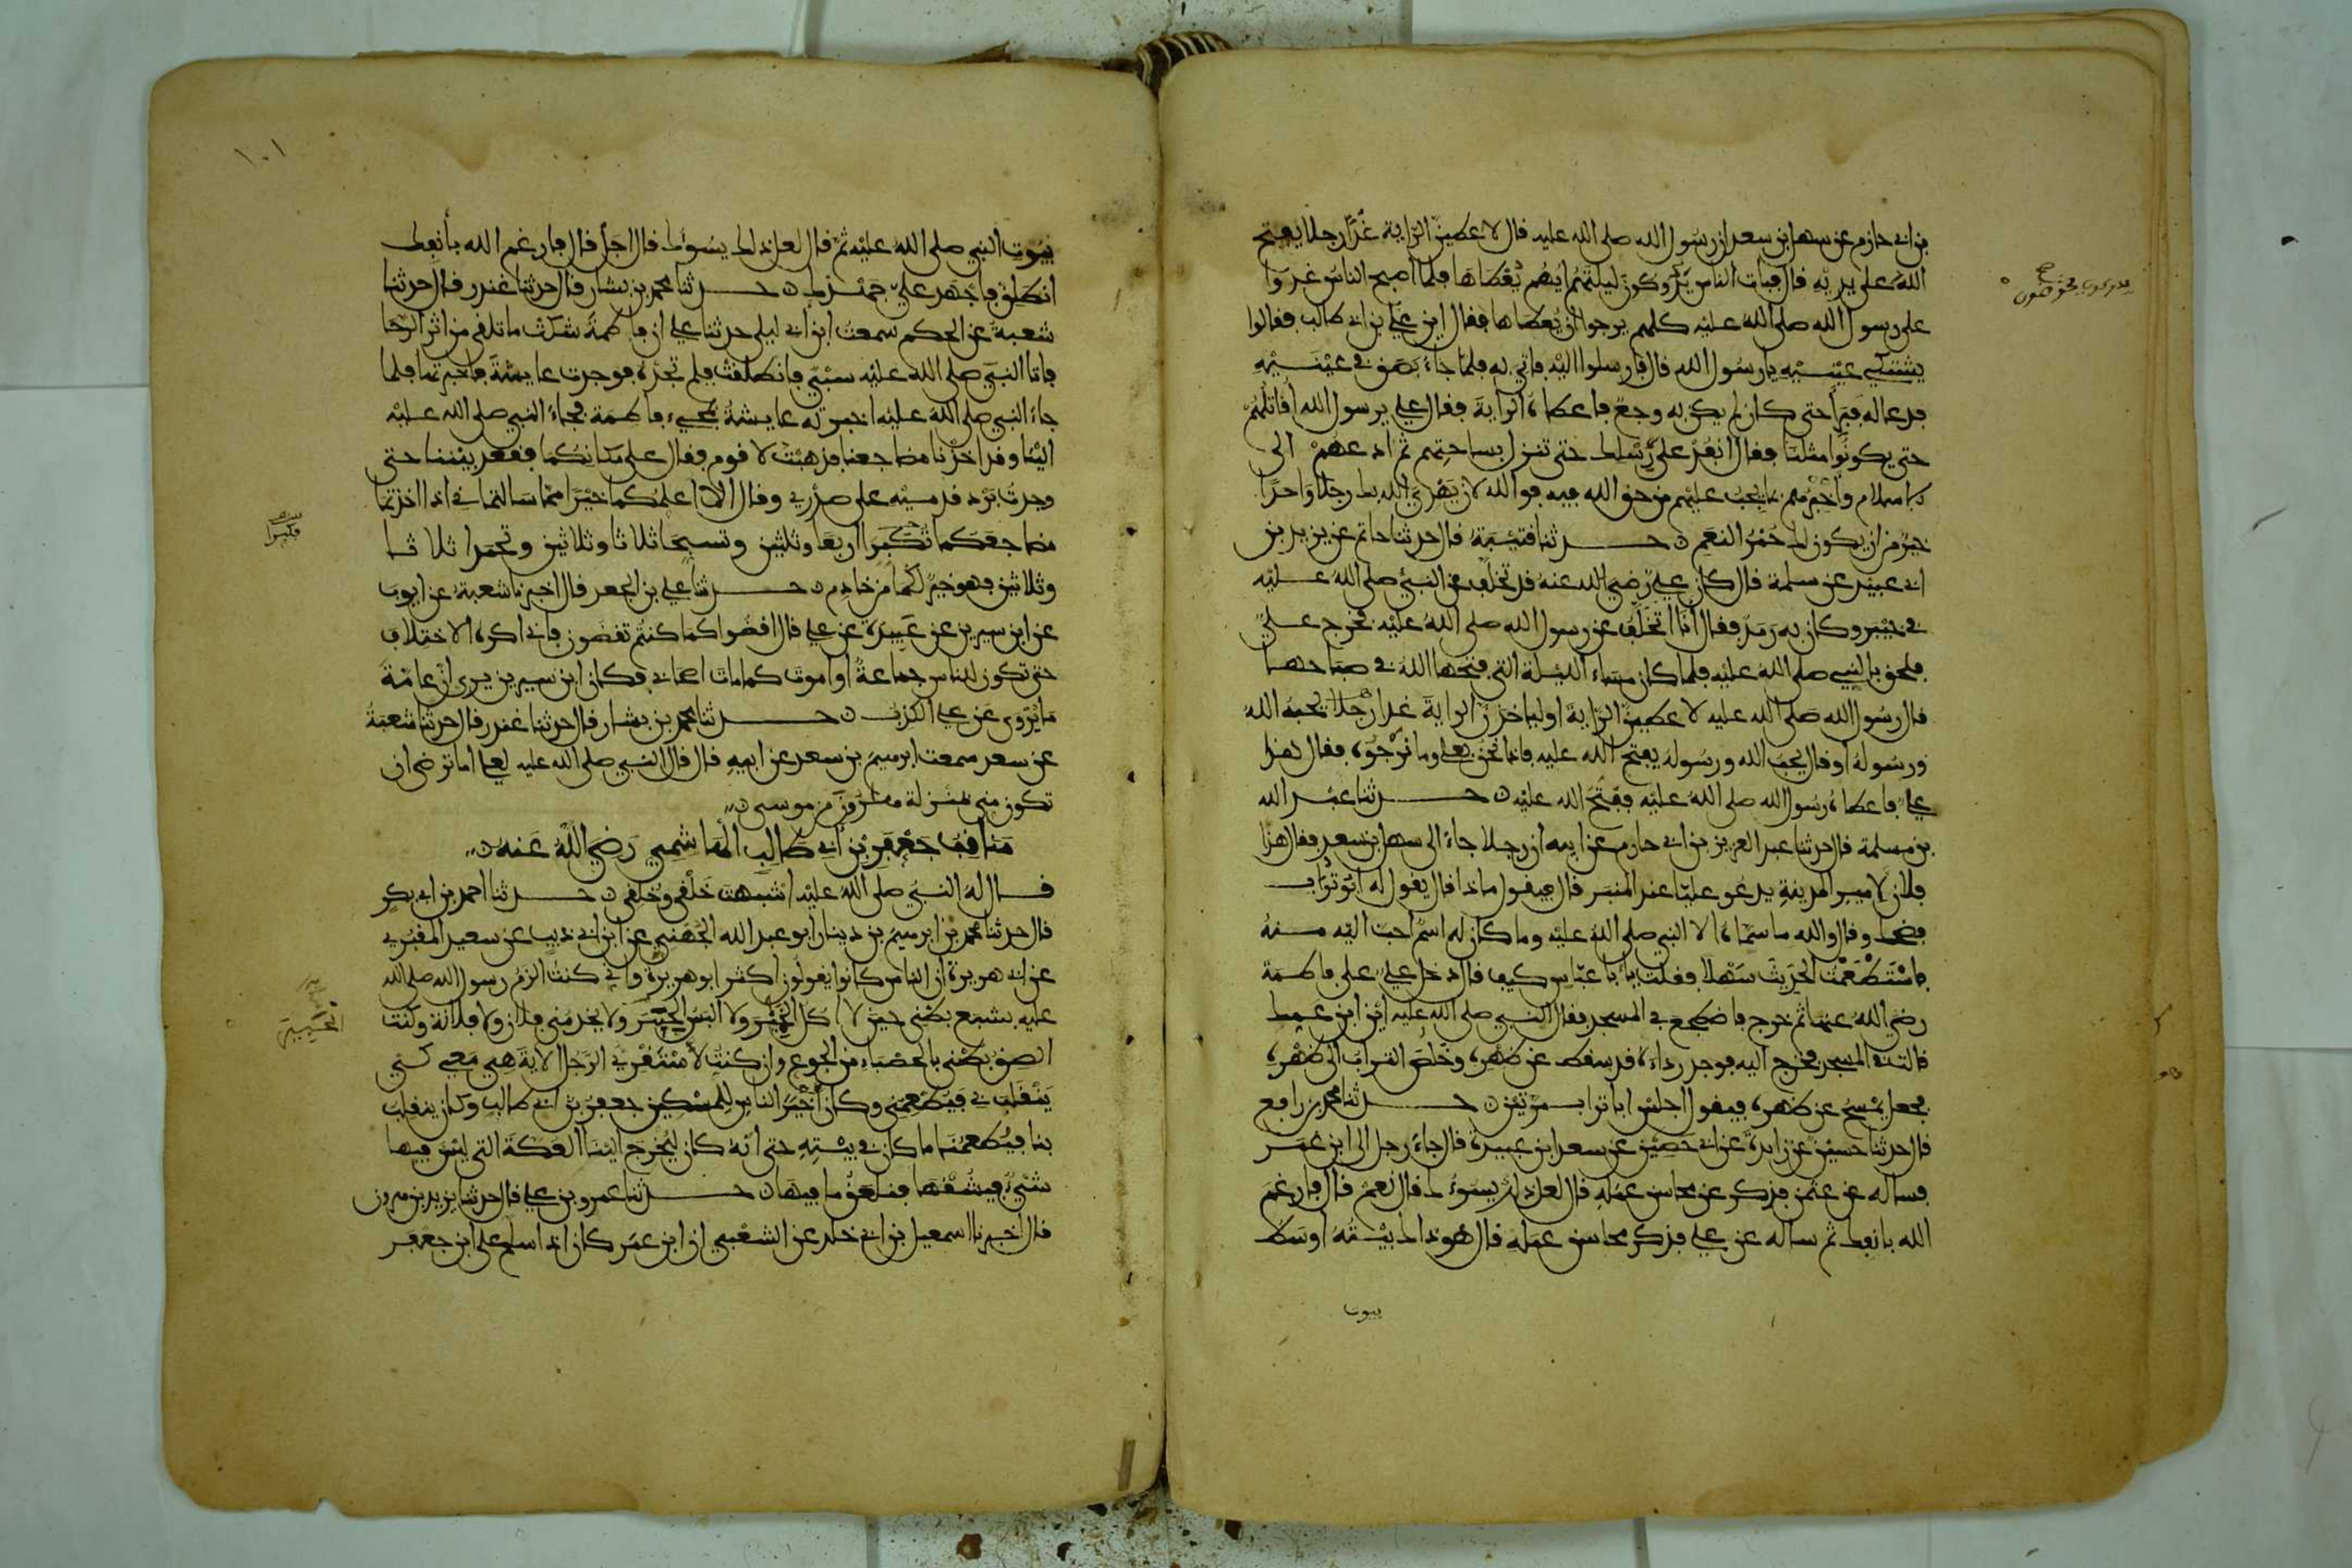 بن ابي حازم عن سهل بن سعد ان رسول الله صلى الله عليه قال لاعطين الراية غدا رجلا يفتح
الله على يديه قال فبات الناس يدوكون ليلتهم ايهم يعطاها فلما اصبح الناس غدوا
على رسول الله صلى الله عليه كلهم يرجوا ان يعطاها فقال اين علي بن ابي طالب فقالوا
يشتكي عينيه يا رسول الله قال فارسلوا اليه فاتي به فلما جاء بصق في عينيه
فدعا له فبرأ حتى كان لم يكن به وجع فاعطاه الراية فقال علي يرسول الله اقاتلهم
حتى يكونوا مثلنا فقال انفذ على رسلك حتى تنزل بساحتهم ثم ادعهم الى
الاسلام واخبرهم بما يجب عليهم من حق الله فيه فوالله لان يهدي الله بك رجلا واحدا
خير من ان يكون لك حمر النعم حدثنا قتيبة قال حدثنا حاتم عن يزيد بن
ابي عبيد عن سلمة قال كان علي رضي الله عنه قد تخلف عن النبي صلى الله عليه
في خيبر وكان به رمد فقال انا اتخلف عن رسول الله صلى الله عليه فخرج علي
فلحق بالنبي صلى الله عليه فلما كان مساء الليلة التي فتحها الله في صباحها
قال رسول الله صلى الله عليه لاعطين الراية او لياخذن الراية غدا رجلا يحبه الله
ورسوله او قال يحب الله ورسوله يفتح الله عليه فاذا نحن بعلي وما نرجوه فقال هذا
علي فاعطاه رسول الله صلى الله عليه ففتح الله عليه حدثنا عبد الله
بن مسلمة قال حدثنا عبد العزيز بن ابي حازم عن ابيه ان رجلا جاء الى سهل بن سعد فقال هذا
فلان لامير المدينة يدعو عليا عند المنبر قال فيقول ماذا قال يقول له ابو تراب
فضحك وقال والله ما سماه الا النبي صلى الله عليه وما كان له اسم احب اليه منه
فاستطعمت الحديث سهلا فقلت يأبا عباس كيف قال دخل علي على فاطمة
رضي الله عنهما ثم خرج فاضطجع في المسجد فقال النبي صلى الله عليه اين ابن عمك
قالت في المسجد فخرج اليه فوجد رداءه قد سقط عن ظهره وخلص التراب الى ظهره
فجعل يمسح عن ظهره فيقول اجلس ابا تراب مرتين حدثنا محمد بن رافع
قال حدثنا حسين عن زايدة عن ابي حصين عن سعد ابن عبيدة قال جاء رجل الى ابن عمر
فساله عن عثمن فذكر عن محاسن عمله قال لعل ذلك يسوءك قال نعم قال فارغم
الله بانفك ثم ساله عن علي فذكر محاسن عمله قال هو ذاك بيته اوسط
بيوت
١٠١
بيوت النبي صلى الله عليه ثم قال لعل ذاك يسوءك قال اجل قال فارغم الله بأنفك
انطلق فاجهد علي جهدك حدثنا محمد بن بشار قال حدثنا غندر قال حدثنا
شعبة عن الحكم سمعت ابن ابي ليلى حدثنا علي ان فاطمة شكت ما تلقى من اثر الرحا
فاتا النبي صلى الله عليه سبي فانطلقت فلم تجده فوجدت عايشة فاخبرتها فلما
جاء النبي صلى الله عليه اخبرته عايشة بمجيء فاطمة فجاء النبي صلى الله عليه
الينا وقد اخذنا مضاجعنا فذهبت لاقوم فقال على مكانكما فقعد بيننا حتى
وجدت برد قدميه على صدري وقال الا اعلمكما خيرا مما سالتماني اذا اخذتما
مضاجعكما تكبرا اربعا وثلثين وتسبحا ثلاثا وثلاثين وتحمدا ثلاثا
وثلاثين فهو خير لكما من خادم حدثنا علي بن الجعد قال اخبرنا شعبة عن ايوب
عن ابن سيرين عن عبيدة عن علي قال اقضوا كما كنتم تقضون فاني اكره الاختلاف
حتى تكون للناس جماعة او اموت كما مات اصحابي فكان ابن سيرين يرى ان عامة
ما يروى عن علي الكذب حدثنا محمد بن بشار قال حدثنا غندر قال حدثنا شعبة
عن سعد سمعت ابرهيم بن سعد عن ابيه قال قال النبي صلى الله عليه لعلي اما ترضى ان
تكون مني بمنزلة هرون من موسى
مناقب جعفر بن ابي طالب الهاشمي رضي الله عنه
قال له النبي صلى الله عليه اشبهت خلقي وخلقي حدثنا احمد بن ابي بكر
قال حدثنا محمد بن ابرهيم بن دينار ابو عبد الله الجهني عن ابن ابي ذيب عن سعيد المقبري
عن ابي هريرة ان الناس كانوا يقولون اكثر ابو هريرة واني كنت الزم رسول الله صلى الله
عليه بشبع بطني حين لا اكل الخمير ولا البس الحبير ولا يخدمني فلان ولا فلانة وكنت
الصق بطني بالحصباء من الجوع وان كنت لاستقري الرجل الاية هي معي كي
ينقلب بي فيطعمني وكان اخير الناس للمسكين جعفر بن ابي طالب وكان ينقلب
بنا فيطعمنا ما كان في بيته حتى انه كان ليخرج الينا العكة التي ليس فيها
شيء فيشقها فنلعق ما فيها حدثنا عمرو بن علي قال حدثنا يزيد بن هرون
قال اخبرنا اسمعيل بن ابي خلد عن الشعبي ان ابن عمر كان اذا سلم على ابن جعفر